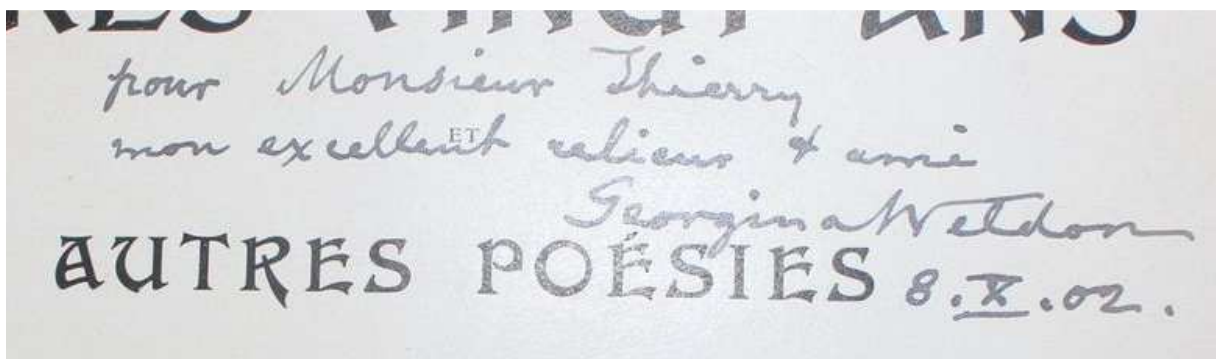 RES VINGT ANS
pour Monsieur Thierry
ET
mon excellent relieur & ami
Georgina Weldon
AUTRES POÉSIES
8.X.02.